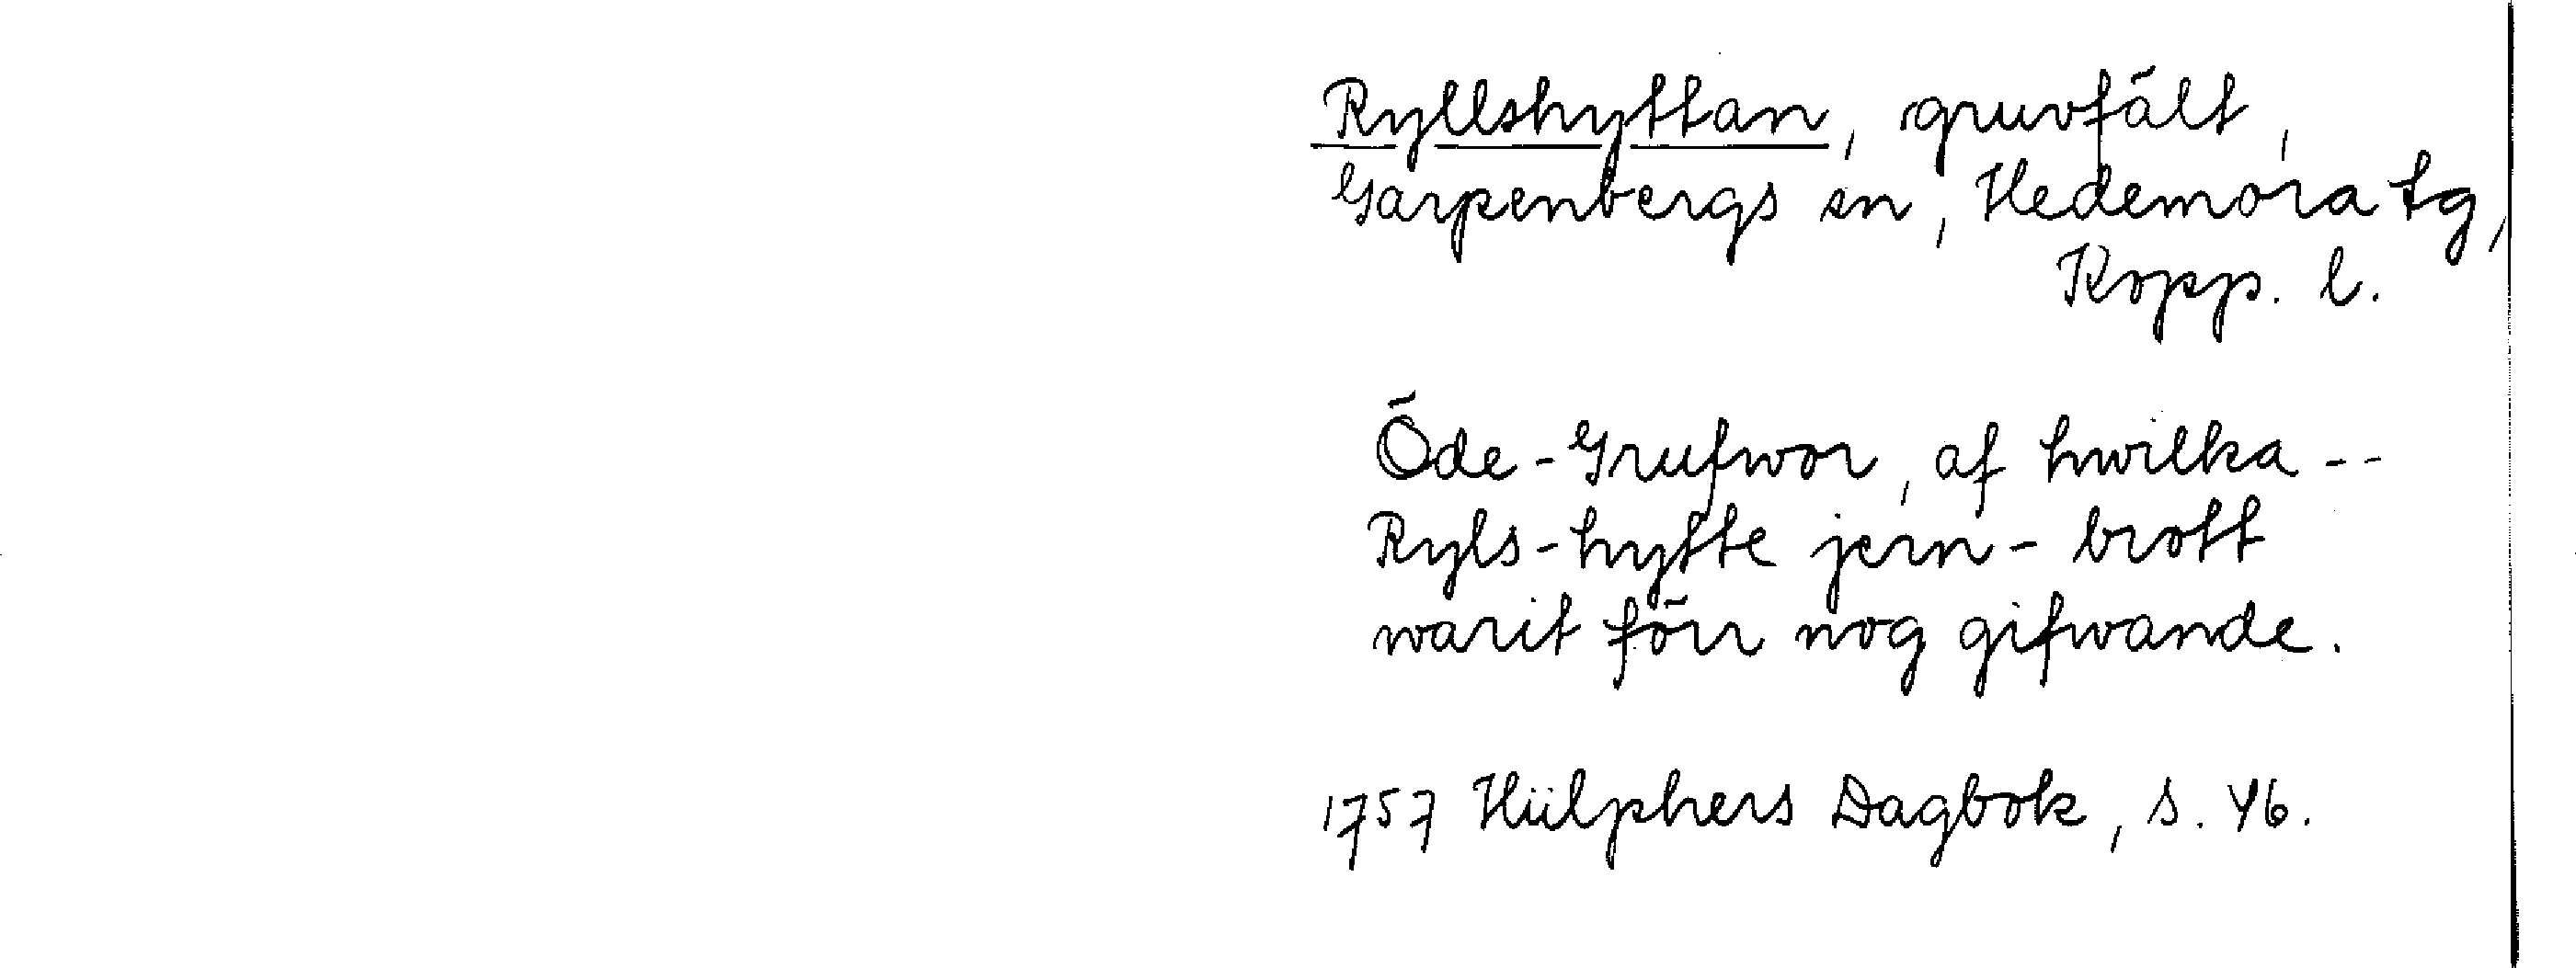 Ryllshyttan, gruvfält,
Garpenbergs sn, Hedemora tg,
Kopp. l.
Öde-Grufwor, af hwilka --
Ryls-hytte jern-brott
warit förr nog gifwande.
1757 Hülphers Dagbok, s. 46.